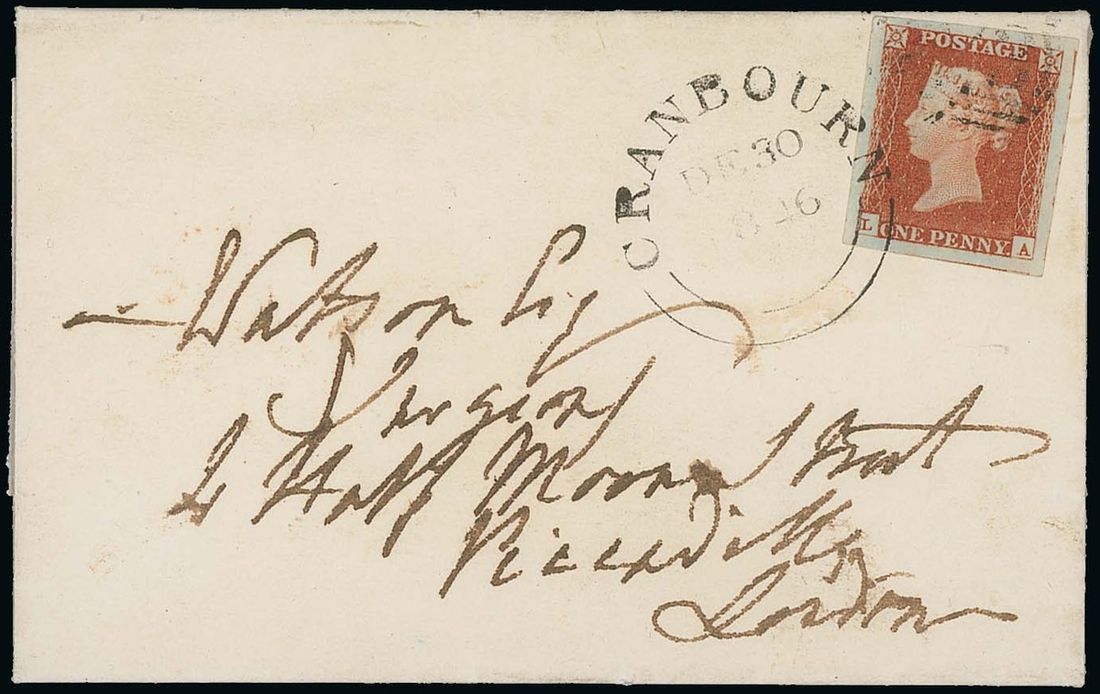 POSTAGE
ONE PENNY.
L A
CRANBOURN
DE 30
1846
— Watson Esq
Surgeon
2 Half Moon Street
Piccadilly
London